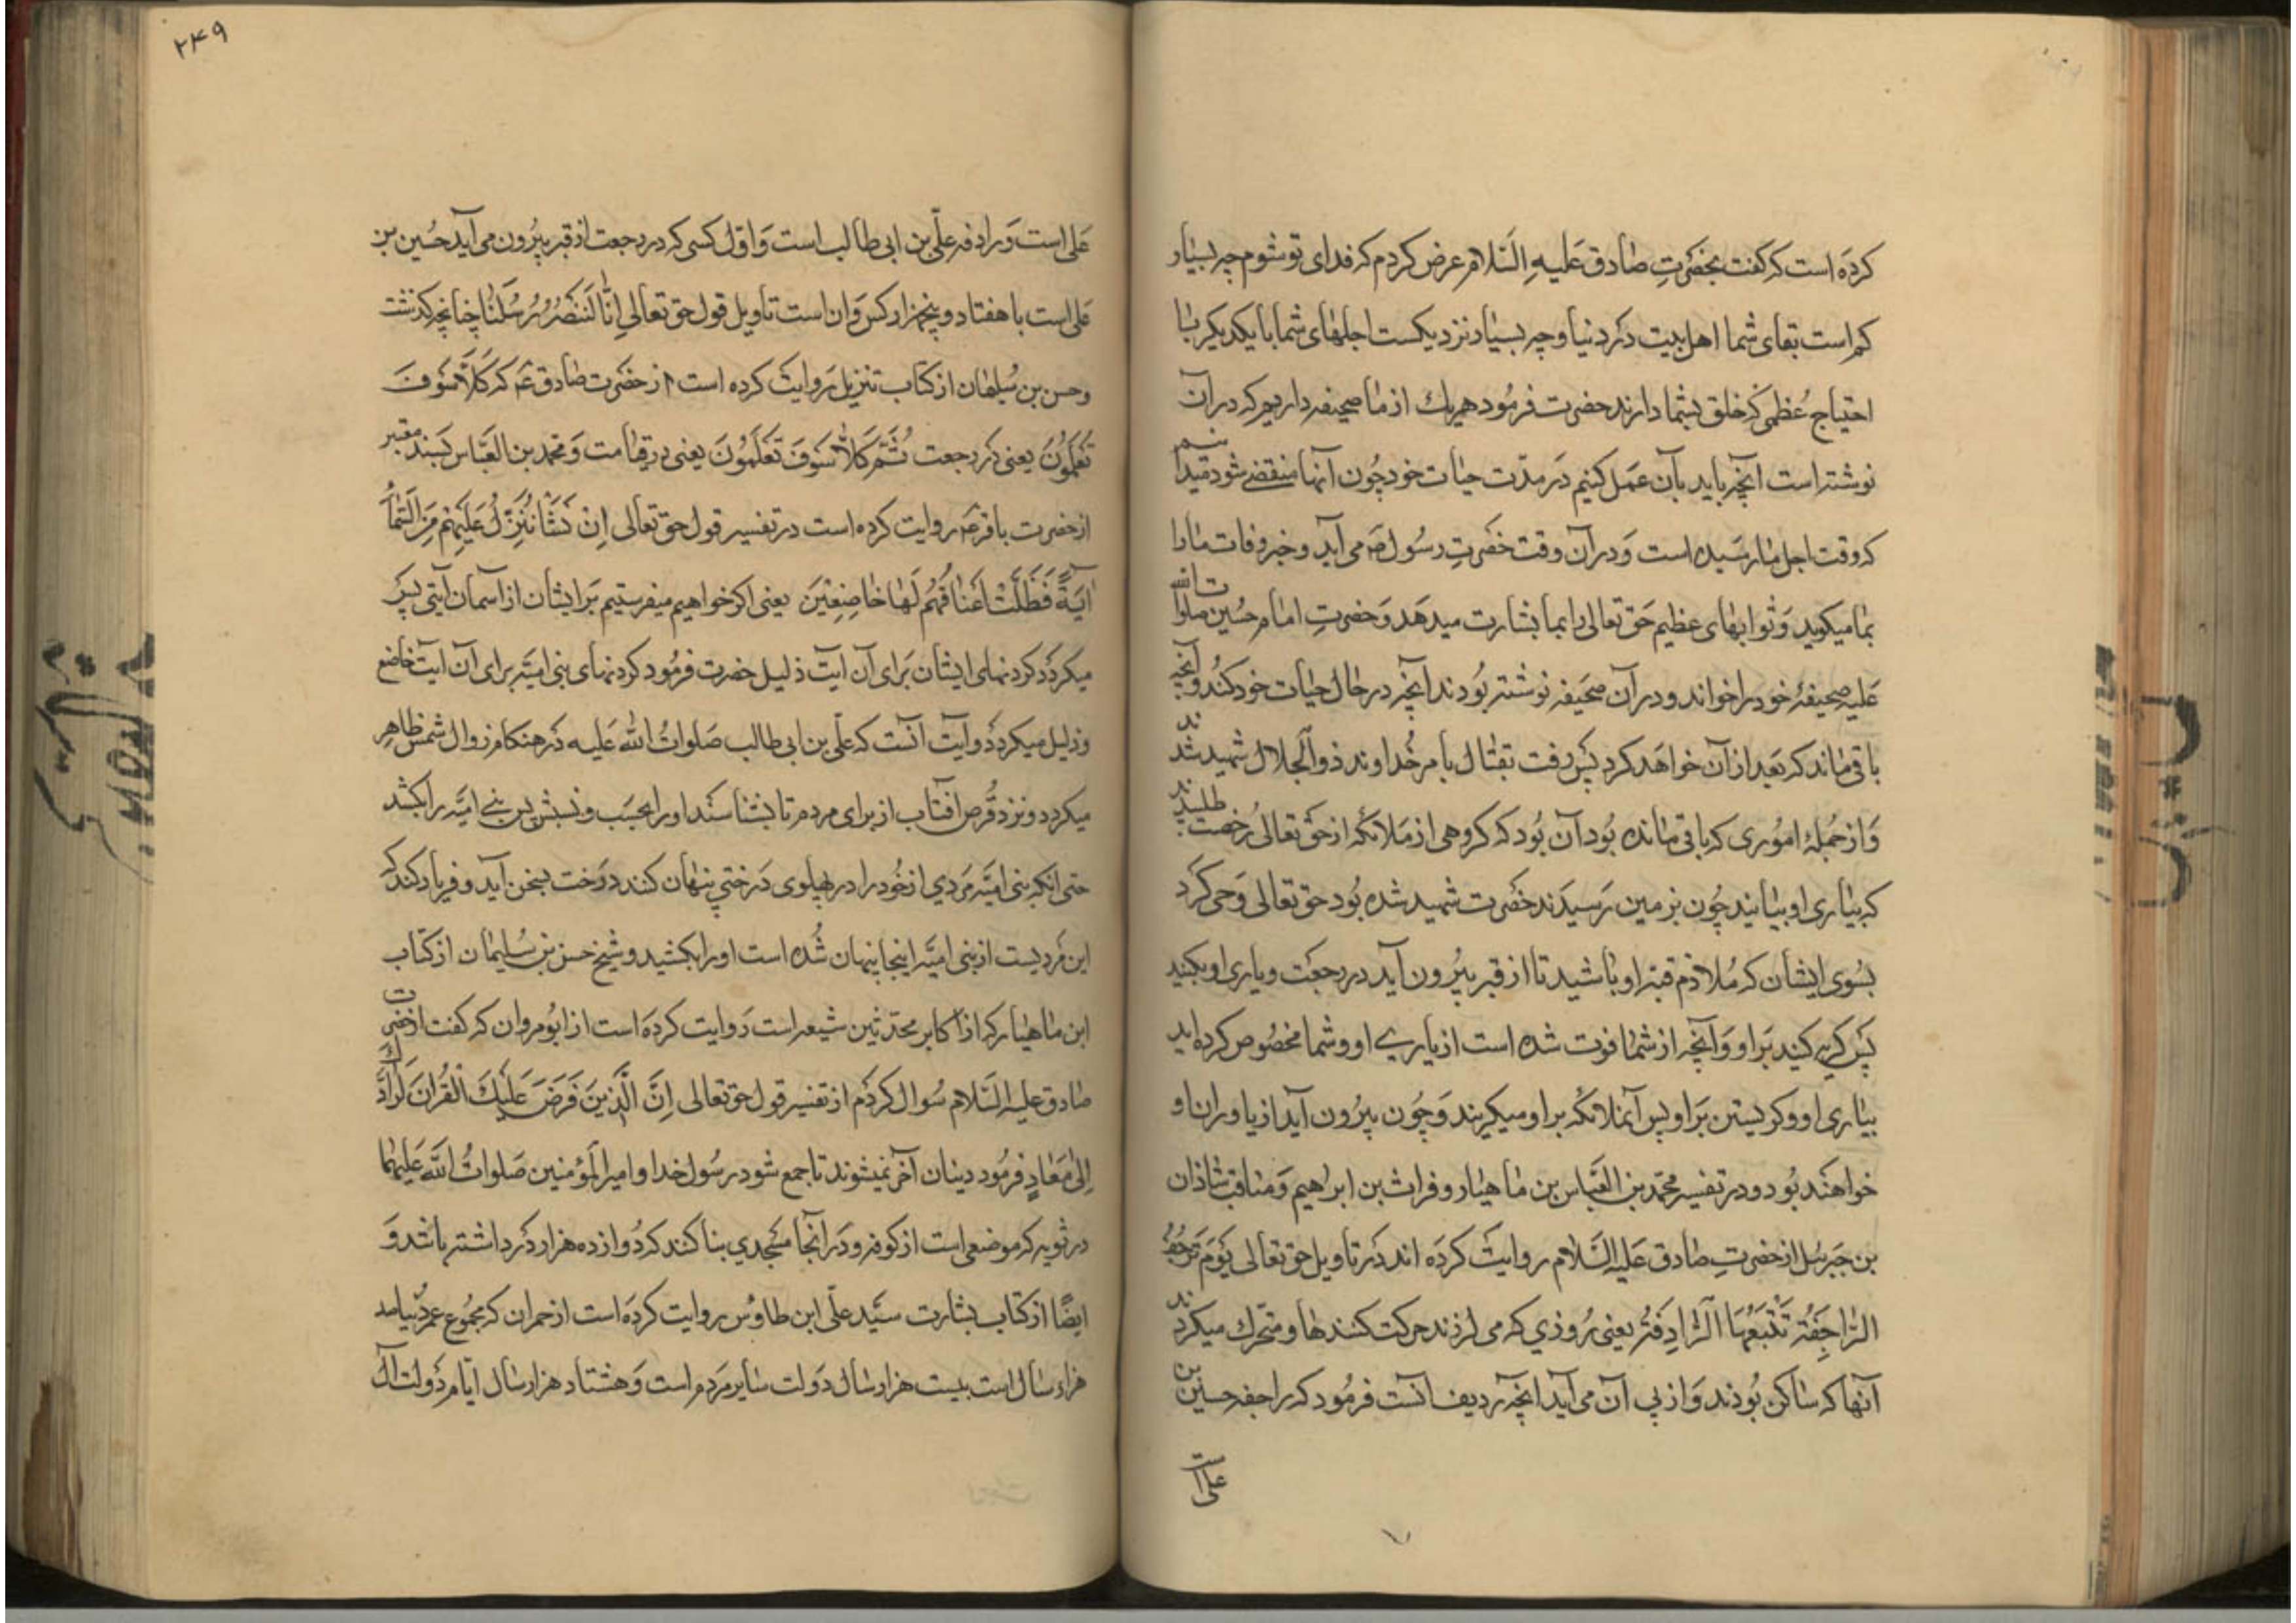 کرده است که گفت بحضرتِ صادق علیهِ السّلام عرض کردم که فدای تو شوم چه بسیار
کم است بقای شما اهل بیت در دنیا و چه بسیار نزدیکست اجلهای شما با یکدیگر با
احتیاج عُظمی که خلق بشما دارند حضرت فرمود هریك از ما صحیفه داریم که در آن
نوشته است آنچه باید بآن عمل کنیم در مدّت حیات خود چون آنها منقضی شود میدانیم
که وقت اجل ما رسیده است و در آن وقت حضرتِ رسُول ص می آید و خبر وفات ما را
بما میگوید و ثوابهای عظیم حق تعالی را بما بشارت میدهد و حضرتِ امام حُسین صلوات الله
علیه صحیفهٔ خود را خواند و در آن صحیفه نوشته بودند آنچه در حال حیات خود کند و آنچه
باقی ماند که بعد از آن خواهد کرد پس رفت بقتال بامر خداوند ذوالجلال شهید شدند
و از جُملهٔ امُوری که باقی مانده بود آن بُود که گروهی از ملائکه از حق تعالی رُخصت طلبیدند
که بیاری او بیایند چون بزمین رسیدند حضرت شهید شده بُود حق تعالی وحی کرد
بسُوی ایشان که مُلازم قبر او باشید تا از قبر بیرُون آید در رجعت و یاری او بکنید
پس گریه کنید بر او و آنچه از شما فوت شده است از یاری او و شما مخصُوص کرده اید
بیاری او و گریستن بر او پس آنملائکه بر او میگریند و چون بیرُون آید از یاوران او
خواهند بُود و در تفسیر محمّد بن العبّاس بن ماهیار و فرات بن ابراهیم و مناقب شاذان
بن جبرئل از حضرتِ صادق علیه السّلام روایت کرده اند در تاویل حق تعالی یَوْمَ تَرْجُفُ
الرّاجِفَةُ تَتْبَعُهَا الرَّادِفَةُ یعنی روزی که می لرزند حرکت کنندها و متحرك میگردند
آنها که ساکن بُودند و از پی آن می آید آنچه ردیف آنست فرمُود که راجفه حسین بن
علی است
۲۴۹
علی است و رادفه علّی بن ابی طالب است و اوّل کسی که در رجعت از قبر بیرُون می آید حُسین بن
علی است با هفتاد و پنجهزار کس و ان است تاویل قول حق تعالی اِنّا لَنَنْصُرُ رُسُلَنا چنانچه گذشت
و حسن بن سُلیمان از کتاب تنزیل روایت کرده است از حضرت صادق ع که کَلّا سَوْفَ
تَعْلَمُونَ یعنی در رجعت ثُمَّ کَلّا سَوْفَ تَعْلَمُونَ یعنی در قیامت و محمد بن العبّاس بسند معتبر
از حضرت باقر ع روایت کرده است در تفسیر قول حق تعالی اِنْ نَشَأْ نُنَزِّلْ عَلَیْهِمْ مِنَ السَّمآءِ
ایَةً فَظَلَّتْ اَعْناقُهُمْ لَها خاضِعِیْنَ یعنی اگر خواهیم میفرستیم بر ایشان از آسمان آیتی پس
میگردد گردنهای ایشان برای آن ایت ذلیل حضرت فرمُود گردنهای بنی امیّه برای آن ایت خاضع
و ذلیل میگردد و آیت آنست که علّی بن ابی طالب صلواتُ الله علیه در هنگام زوال شمس ظاهر
میگردد و نزد قُرص افتاب از برای مردم تا بشناسند او را بحسب و نسبش پس بنی امیّه را بکشد
حتی انکه بنی امیّه مردی از خُود را در پهلوی درختی پنهان کنند درخت بسخن آید و فریاد کند که
این مردیست از بنی امیّه اینجا پنهان شُده است او را بکشید و شیخ حسن بن سُلیمان از کتاب
ابن ماهیار که از اکابر محدّثین شیعه است روایت کرده است از ابُو مروان که گفت از حضرت
صادق علیه السّلام سُوال کردم از تفسیر قول حق تعالی اِنَّ الَّذِینَ فَرَضَ عَلَیْكَ الْقُرانَ لَرادُّكَ
اِلیٰ مَعادٍ فرمُود دینان آخر نمیشوند تا جمع شود رسُول خدا و امیر المؤمنین صَلواتُ الله علیهما
در ثویه که موضعی است از کوفه و در انجا مسجدی بنا کند که دوازده هزار در داشته باشد و
ایضًا از کتاب بشارت سیّد علّی ابن طاوُس روایت کرده است از حمران که مجمُوع عمر دُنیا صد
هزار سال است بیست هزار سال دولت سایر مردم است و هشتاد هزار سال ایّام دولت آل